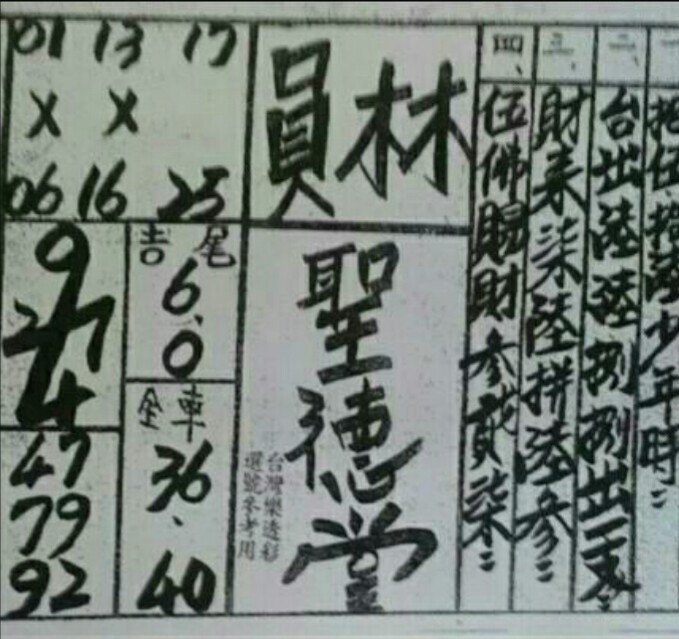 一、
拾伍拾陸少年時
二、
台出陸陸捌捌出二支
三、
財來柒陸拼陸參
四、
伍佛賜財參貳柒
林員
聖德堂
台灣樂透彩
選號參考用
01 13 17
X X
06 16 25
9
27
4
吉尾
6、0
全車
36、40
47
79
92